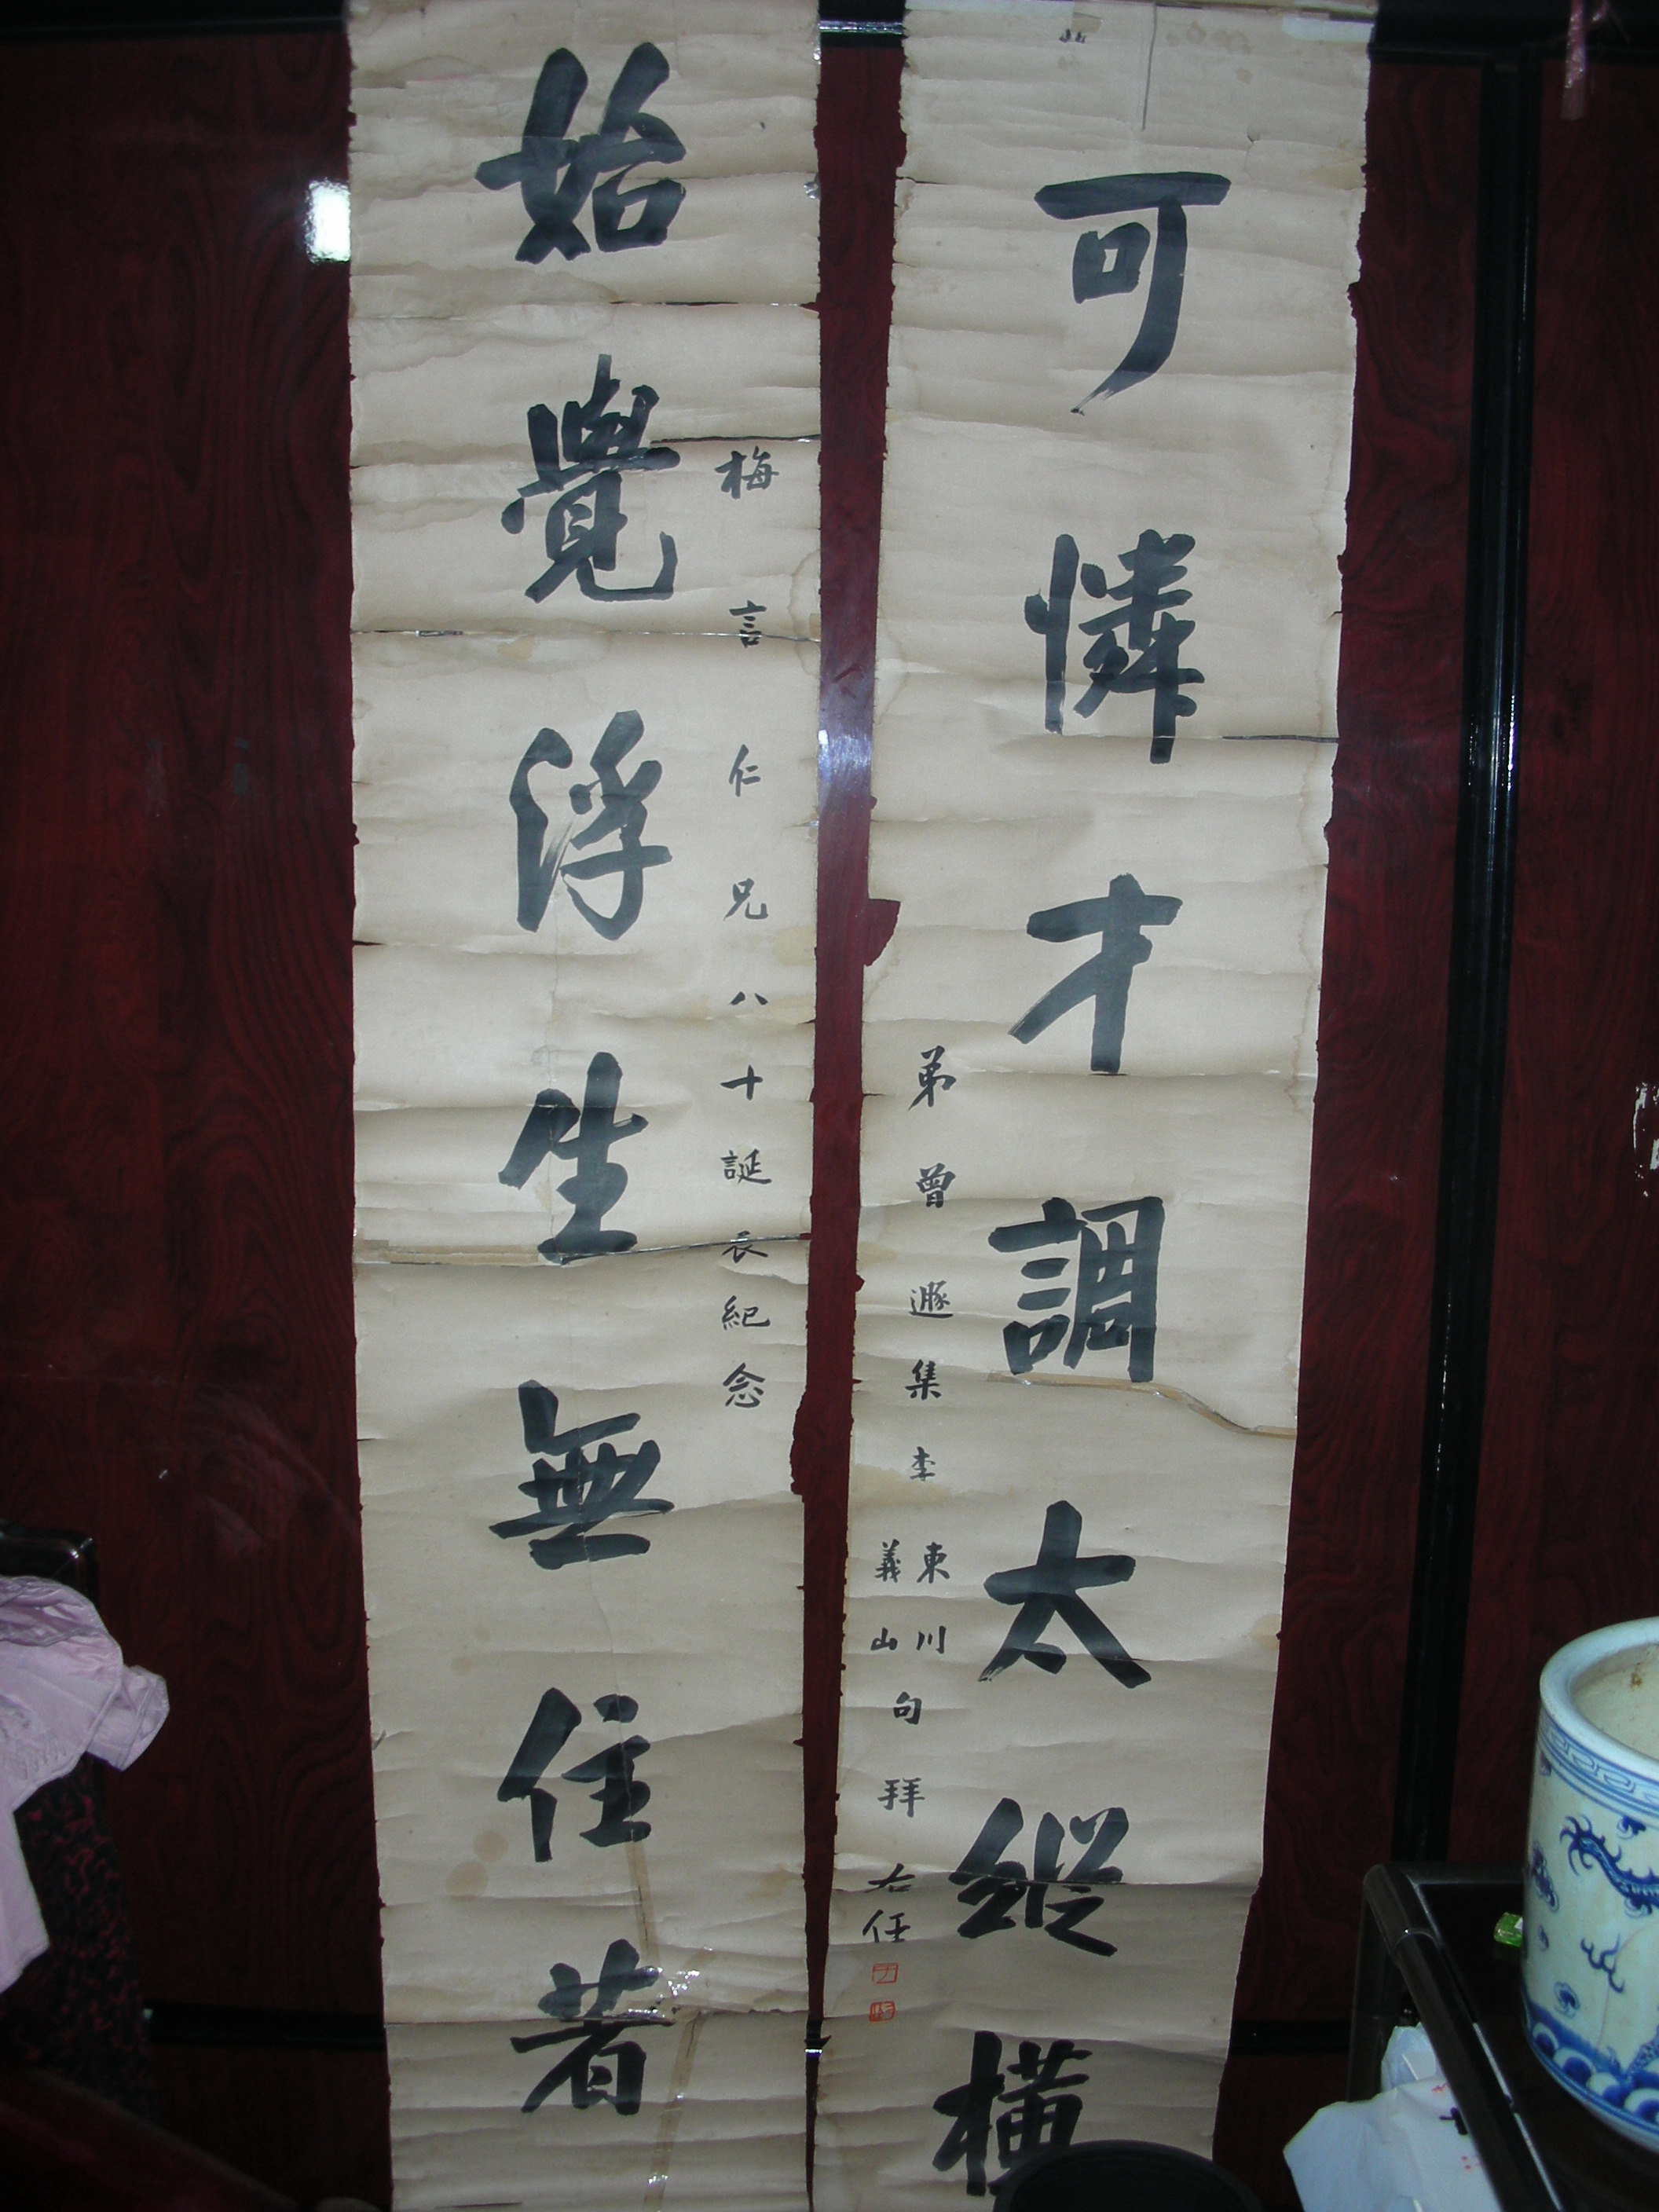 始覺浮生無住著
梅言仁兄八十誕辰紀念
可憐才調太縱橫
弟曾遯集李
東川
義山
句拜
右任